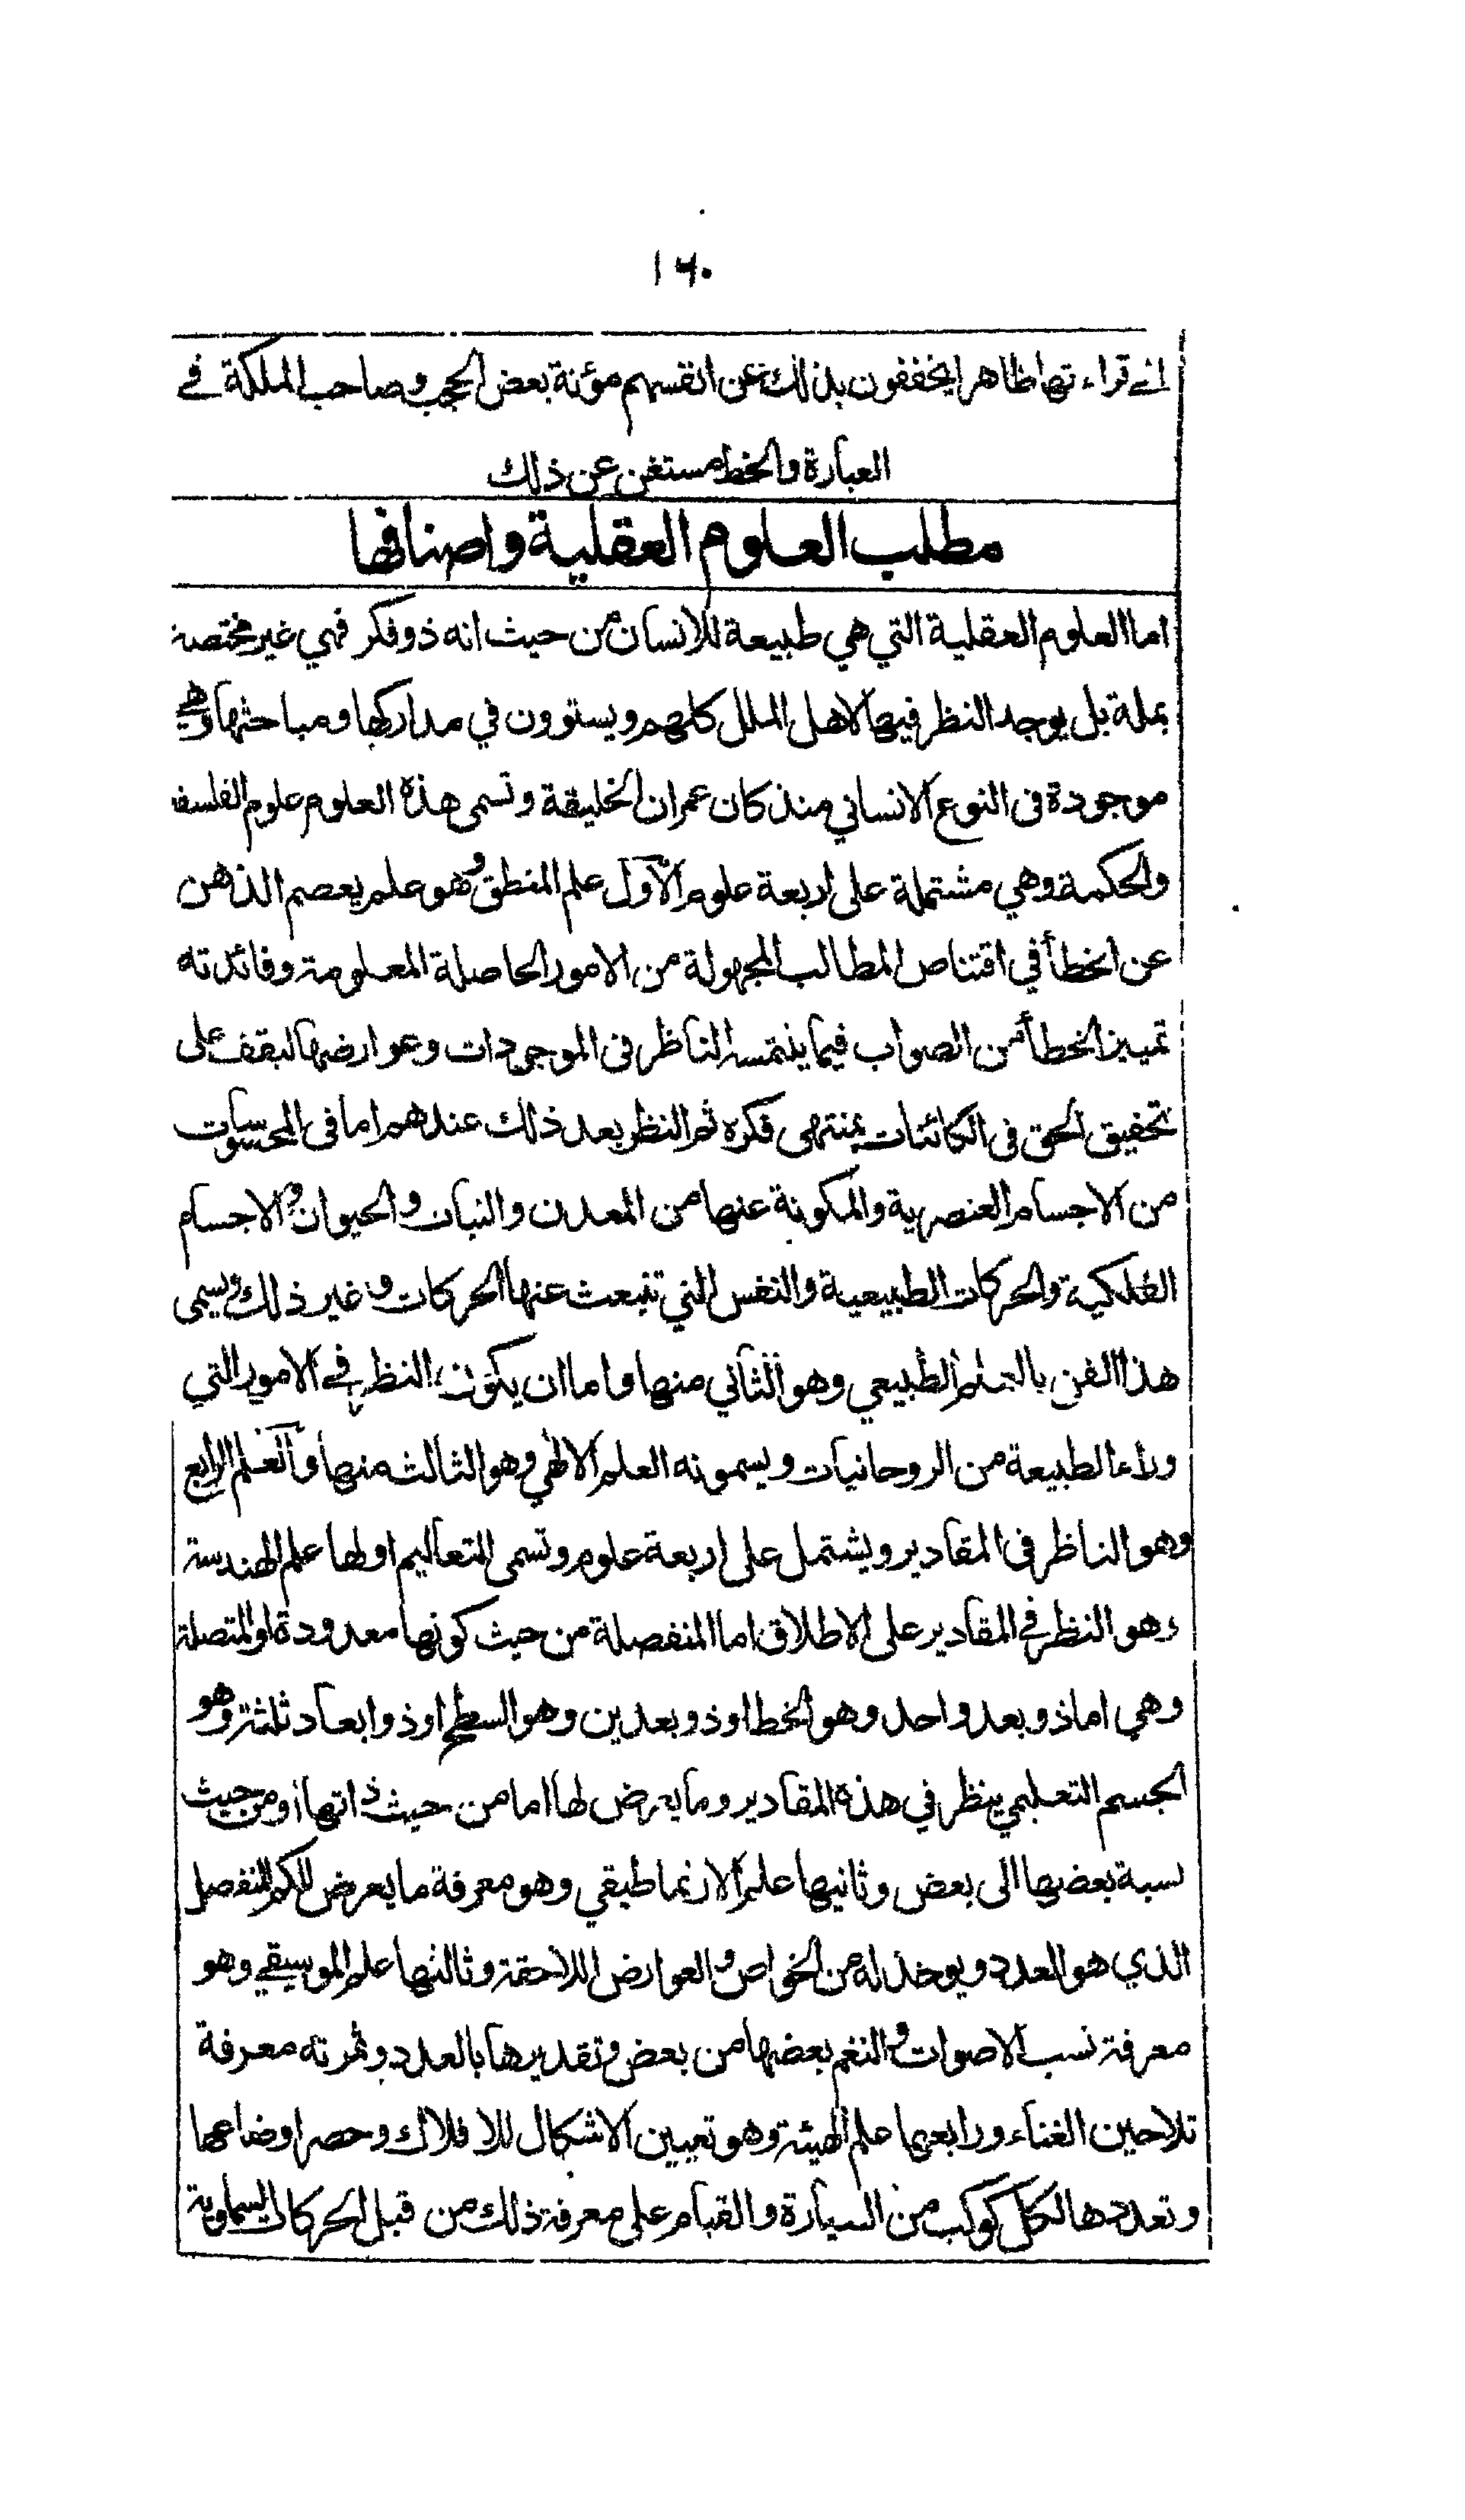 ١٦٠
الى قراءتها ظاهرا يخففون بذلك عن انفسهم مؤنة بعض الحجب وصاحب الملكة في
العبارة والخط مستغن عن ذلك
مطلب العلوم العقلية واصنافها
اما العلوم العقلية التي هي طبيعة للانسان من حيث انه ذو فكر فهي غير مختصة
بملة بل يوجد النظر فيها لاهل الملل كلهم ويستوون في مداركها ومباحثها وهي
موجودة فى النوع الانساني منذ كان عمران الخليقة وتسمى هذه العلوم علوم الفلسفة
والحكمة وهي مشتملة على اربعة علوم الاول علم المنطق وهو علم يعصم الذهن
عن الخطأ في اقتناص المطالب المجهولة من الامور الحاصلة المعلومة وفائدته
تمييز الخطأ من الصواب فيما يلتمسه الناظر فى الموجودات وعوارضها ليقف على
تحقيق الحق فى الكائنات بمنتهى فكره ثم النظر بعد ذلك عندهم اما فى المحسوسات
من الاجسام العنصرية والمكونة عنها من المعدن والنبات والحيوان والاجسام
الفلكية والحركات الطبيعية والنفس التي تنبعث عنها الحركات وغير ذلك ويسمى
هذا الفن بالعلم الطبيعي وهو الثاني منها واما ان يكون النظر في الامور التي
وراء الطبيعة من الروحانيات ويسمونه العلم الالهي وهو الثالث منها والعلم الرابع
وهو الناظر فى المقادير ويشتمل على اربعة علوم وتسمى التعاليم اولها علم الهندسة
وهو النظر في المقادير على الاطلاق اما المنفصلة من حيث كونها معدودة او المتصلة
وهي اما ذو بعد واحد وهو الخط او ذو بعدين وهو السطح او ذو ابعاد ثلثة وهو
الجسم التعليمي ينظر في هذه المقادير وما يعرض لها اما من حيث ذاتها او من حيث
نسبة بعضها الى بعض وثانيها علم الارتماطيقي وهو معرفة ما يعرض للكم المنفصل
الذي هو العدد ويوخذ له من الخواص والعوارض اللاحقة وثالثها علم الموسيقي وهو
معرفة نسب الاصوات والنغم بعضها من بعض وتقديرها بالعدد وثمرته معرفة
تلاحين الغناء ورابعها علم الهيئة وهو تعيين الاشكال للافلاك وحصر اوضاعها
وتعددها لكل كوكب من السيارة والقيام على معرفة ذلك من قبل الحركات السماوية